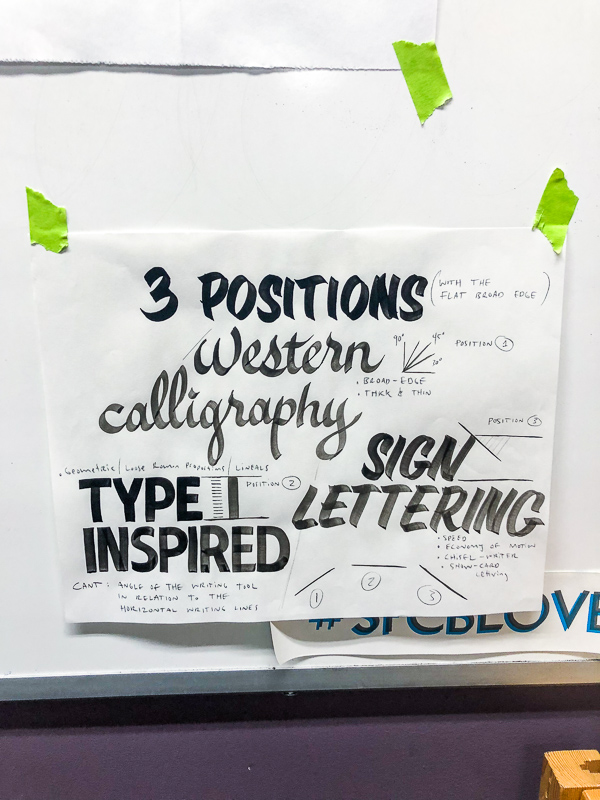 3 POSITIONS
(WITH THE
FLAT BROAD EDGE)
Western
calligraphy
90° 45° 20°
POSITION 1
• BROAD-EDGE
• THICK & THIN
• Geometric / Loose Roman Proportions / LINEALS
TYPE
INSPIRED
POSITION 2
CANT: ANGLE OF THE WRITING TOOL
IN RELATION TO THE
HORIZONTAL WRITING LINES
POSITION 3
SIGN
LETTERING
• SPEED
• ECONOMY OF MOTION
• CHISEL-WRITER
• SHOW-CARD
1 2 3
#SFCBLOVE